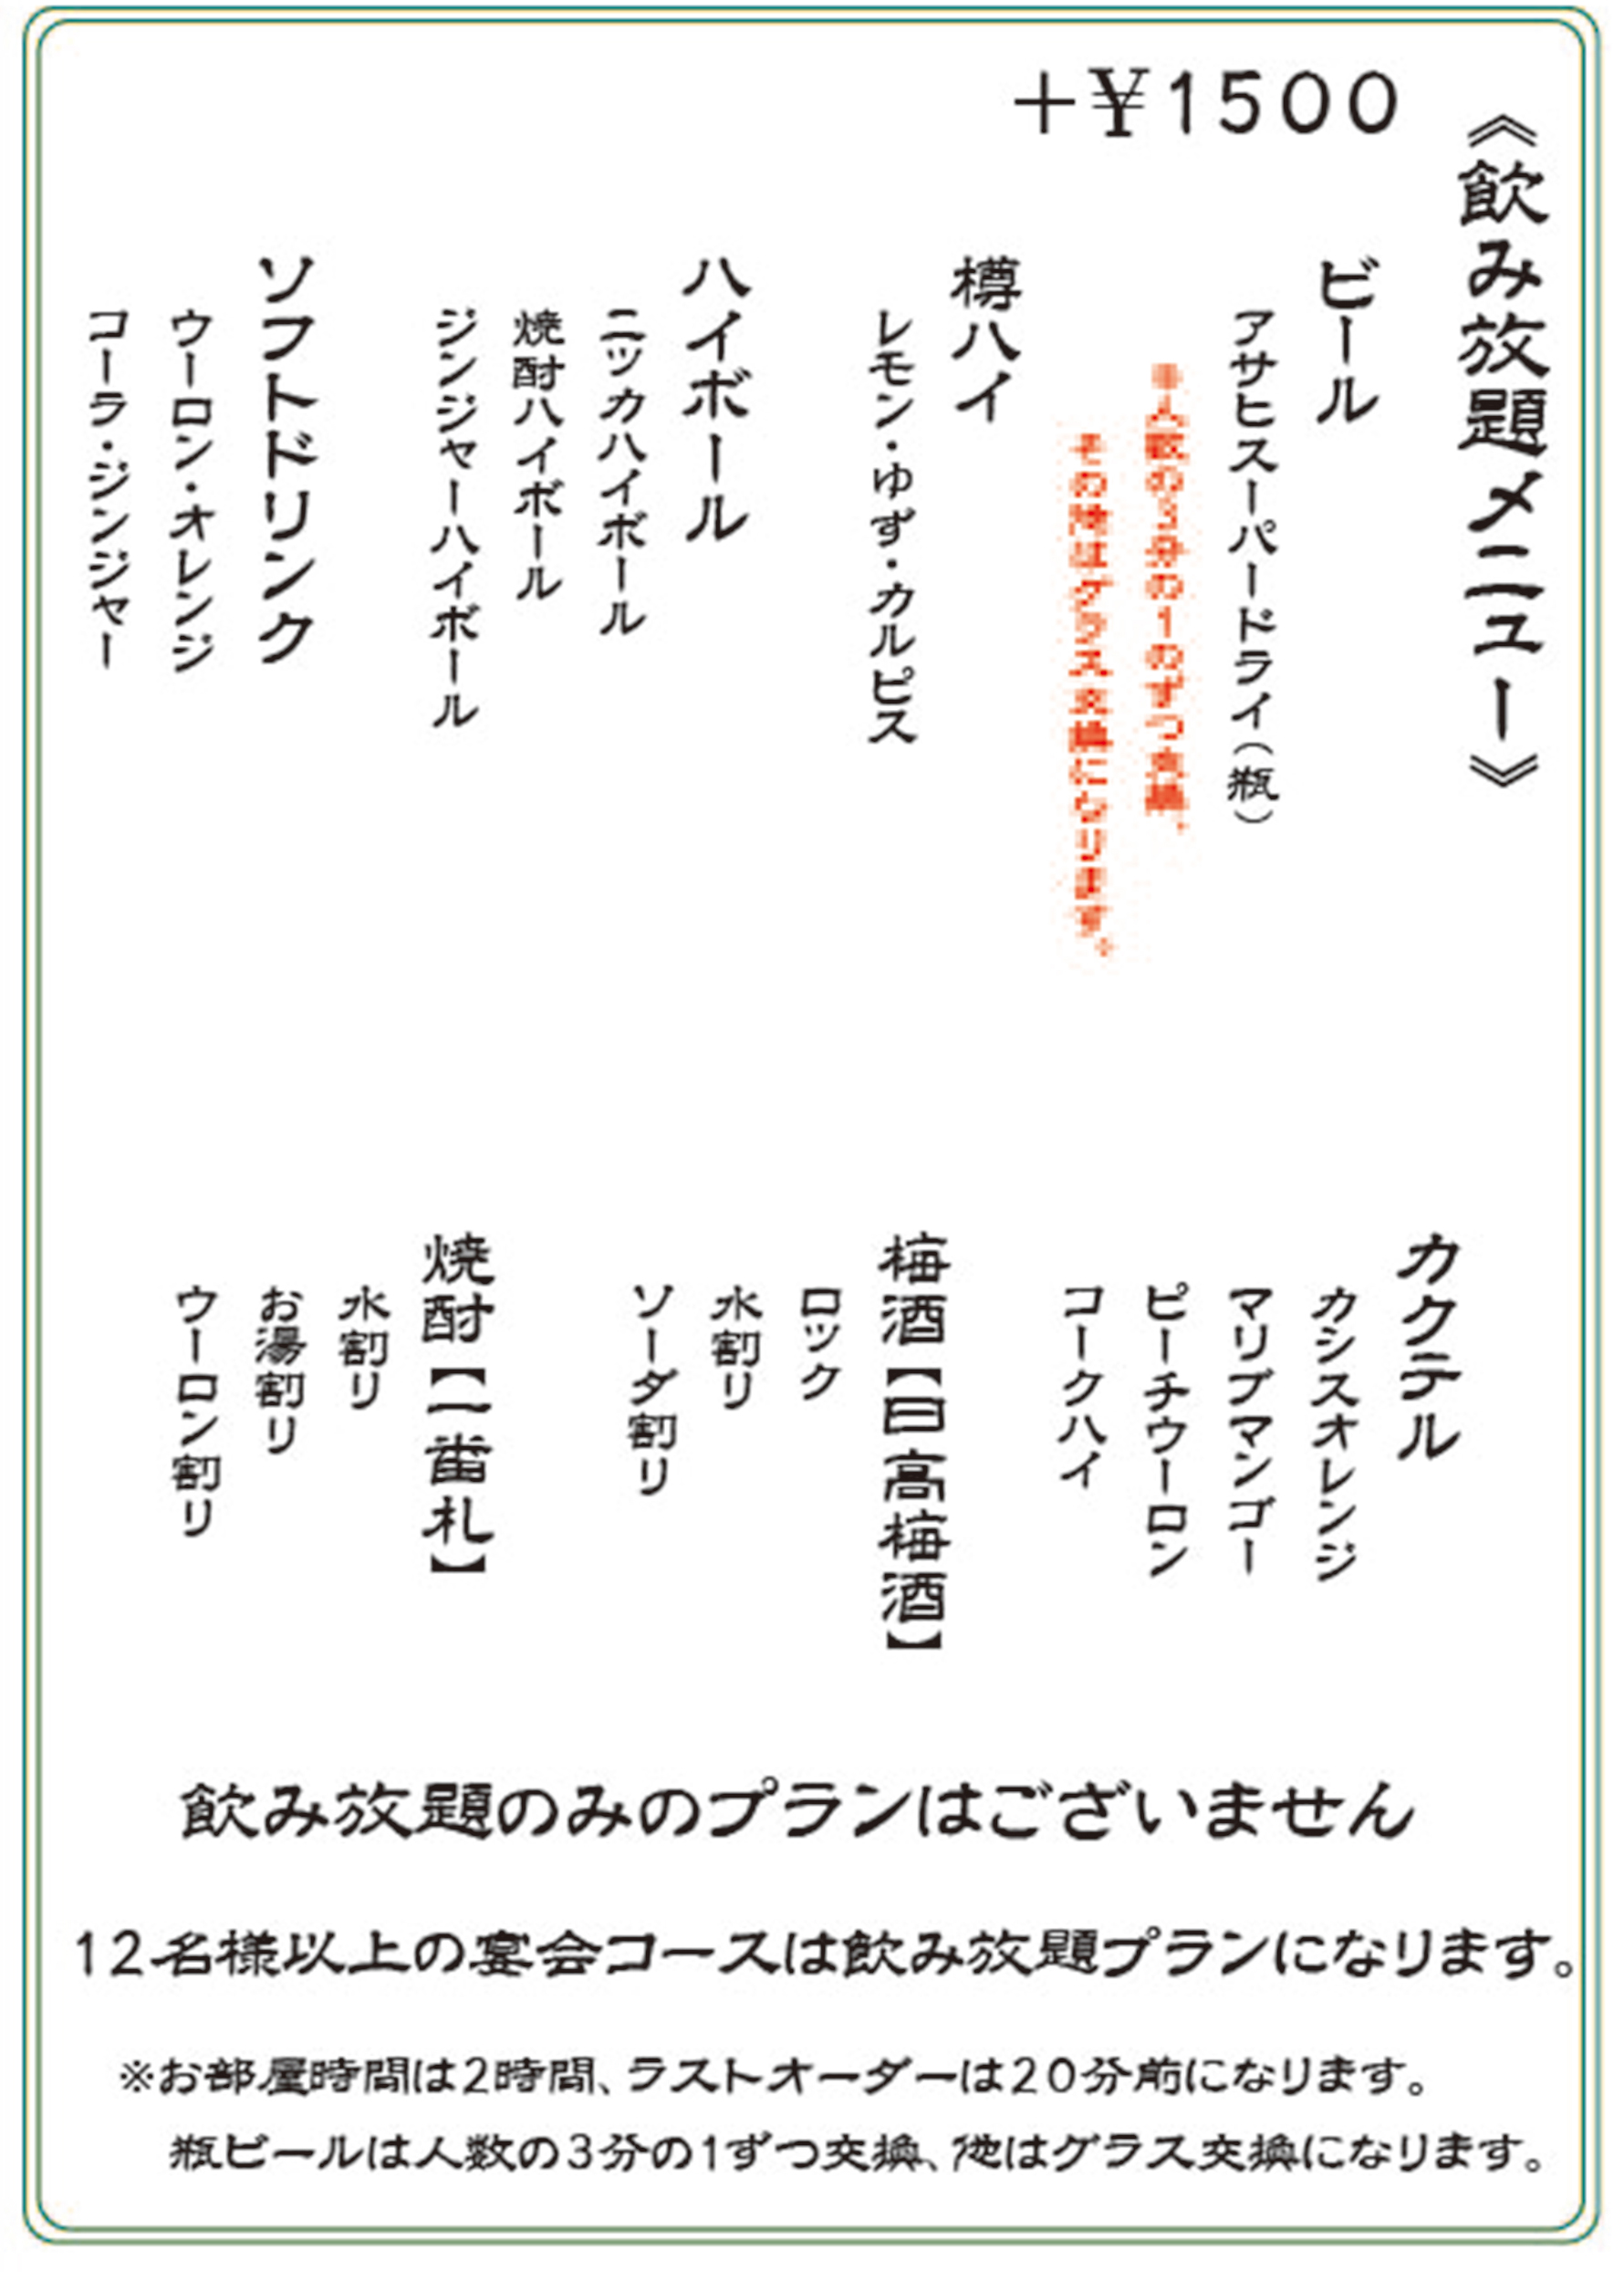 《飲み放題メニュー》
+¥1500
ビール
アサヒスーパードライ(瓶)
※人数の3分の1のずつ交換、
その他はグラス交換になります。
樽ハイ
レモン・ゆず・カルピス
ハイボール
ニッカハイボール
焼酎ハイボール
ジンジャーハイボール
ソフトドリンク
ウーロン・オレンジ
コーラ・ジンジャー
カクテル
カシスオレンジ
マリブマンゴー
ピーチウーロン
コークハイ
梅酒【日高梅酒】
ロック
水割り
ソーダ割り
焼酎【一番札】
水割り
お湯割り
ウーロン割り
飲み放題のみのプランはございません
12名様以上の宴会コースは飲み放題プランになります。
※お部屋時間は2時間、ラストオーダーは20分前になります。
瓶ビールは人数の3分の1ずつ交換、他はグラス交換になります。